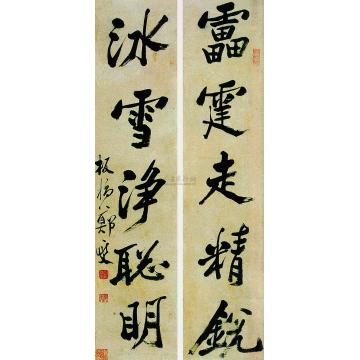 雷霆走精銳
冰雪淨聰明
板橋鄭燮